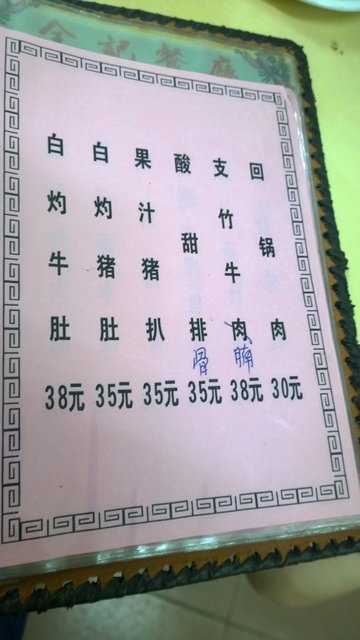 金記餐廳
白灼牛肚
38元
白灼猪肚
35元
果汁猪扒
35元
酸甜排骨
35元
支竹牛肉腩
38元
回锅肉
30元